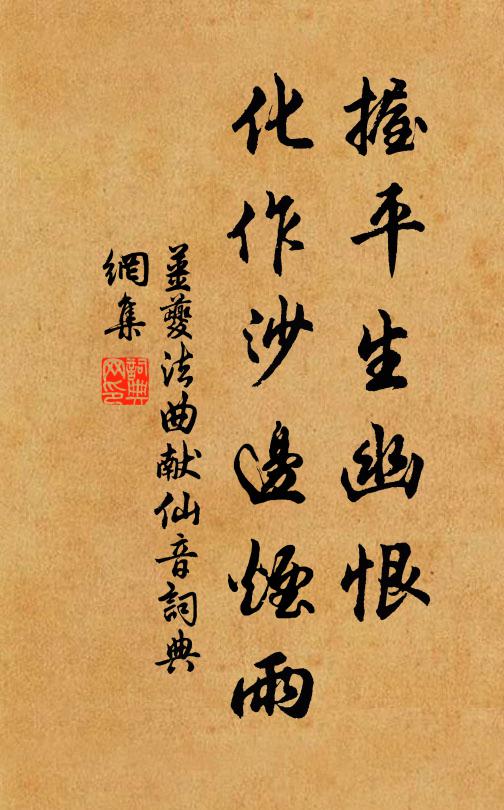 握平生幽恨
化作沙邊煙雨
姜夔法曲献仙音詞典
網集
詞典
网印